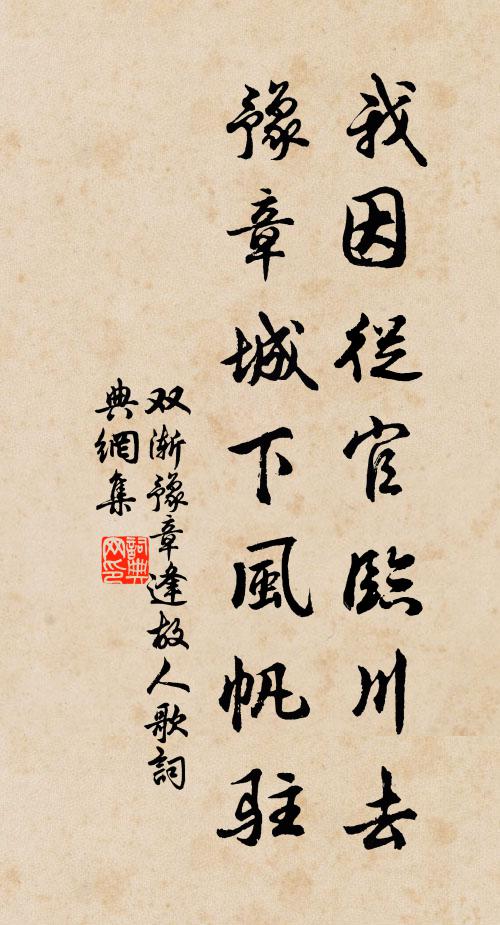 我因從官臨川去
豫章城下風帆駐
双渐豫章逢故人歌詞
典網集
詞典網印